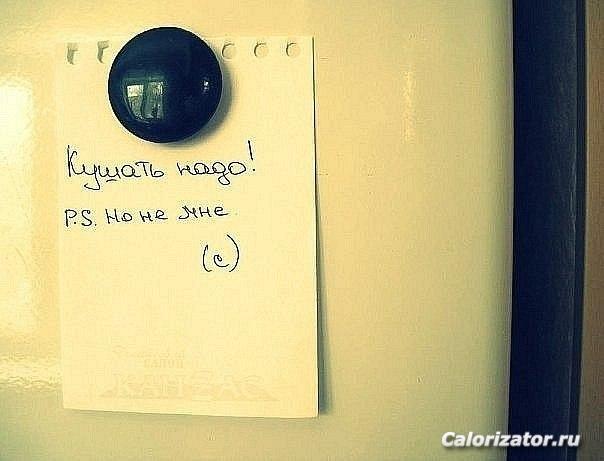 Кушать надо!
P.S. Но не мне
(с)
САЛОН
КАНВАС
Calorizator.ru